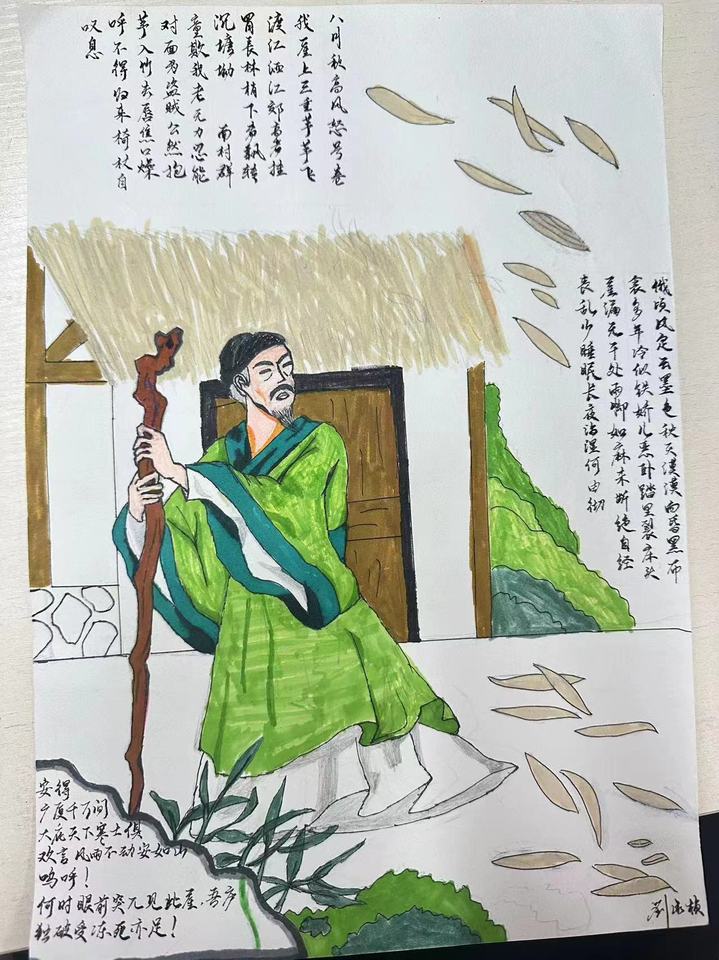 八月秋高风怒号卷
我屋上三重茅茅飞
渡江洒江郊高者挂
罥长林梢下者飘转
沉塘坳 南村群
童欺我老无力忍能
对面为盗贼公然抱
茅入竹去唇焦口燥
呼不得归来倚杖自
叹息
俄顷风定云墨色秋天漠漠向昏黑布
衾多年冷似铁娇儿恶卧踏里裂床头
屋漏无干处雨脚如麻未断绝自经
丧乱少睡眠长夜沾湿何由彻
安得
广厦千万间
大庇天下寒士俱
欢言风雨不动安如山
呜呼！
何时眼前突兀见此屋.吾庐
独破受冻死亦足！